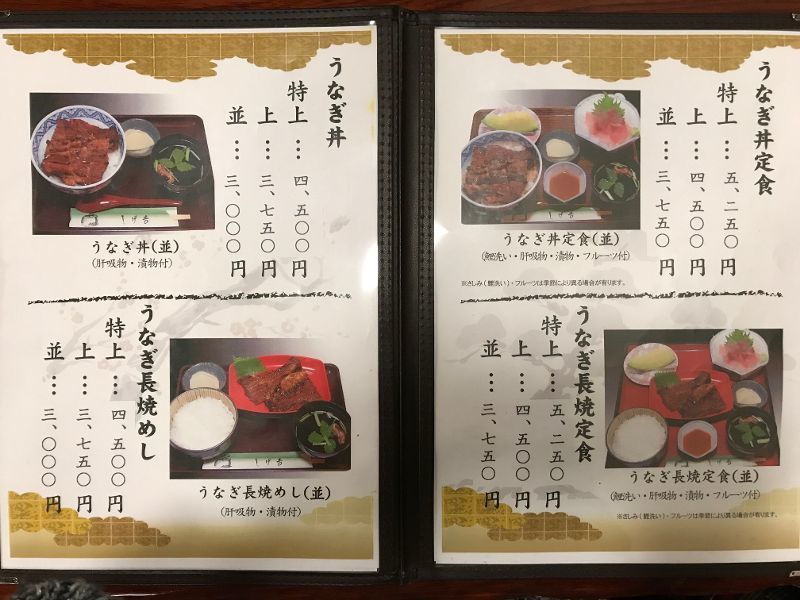 うなぎ丼
特上…四、五〇〇円
上…三、七五〇円
並…三、〇〇〇円
うなぎ丼(並)
(肝吸物・漬物付)
うなぎ長焼めし
特上…四、五〇〇円
上…三、七五〇円
並…三、〇〇〇円
うなぎ長焼めし(並)
(肝吸物・漬物付)
うなぎ丼定食
特上…五、二五〇円
上…四、五〇〇円
並…三、七五〇円
うなぎ丼定食(並)
(鯉洗い・肝吸物・漬物・フルーツ付)
※さしみ(鯉洗い)・フルーツは季節により異る場合が有ります。
うなぎ長焼定食
特上…五、二五〇円
上…四、五〇〇円
並…三、七五〇円
うなぎ長焼定食(並)
(鯉洗い・肝吸物・漬物・フルーツ付)
※さしみ(鯉洗い)・フルーツは季節により異る場合が有ります。